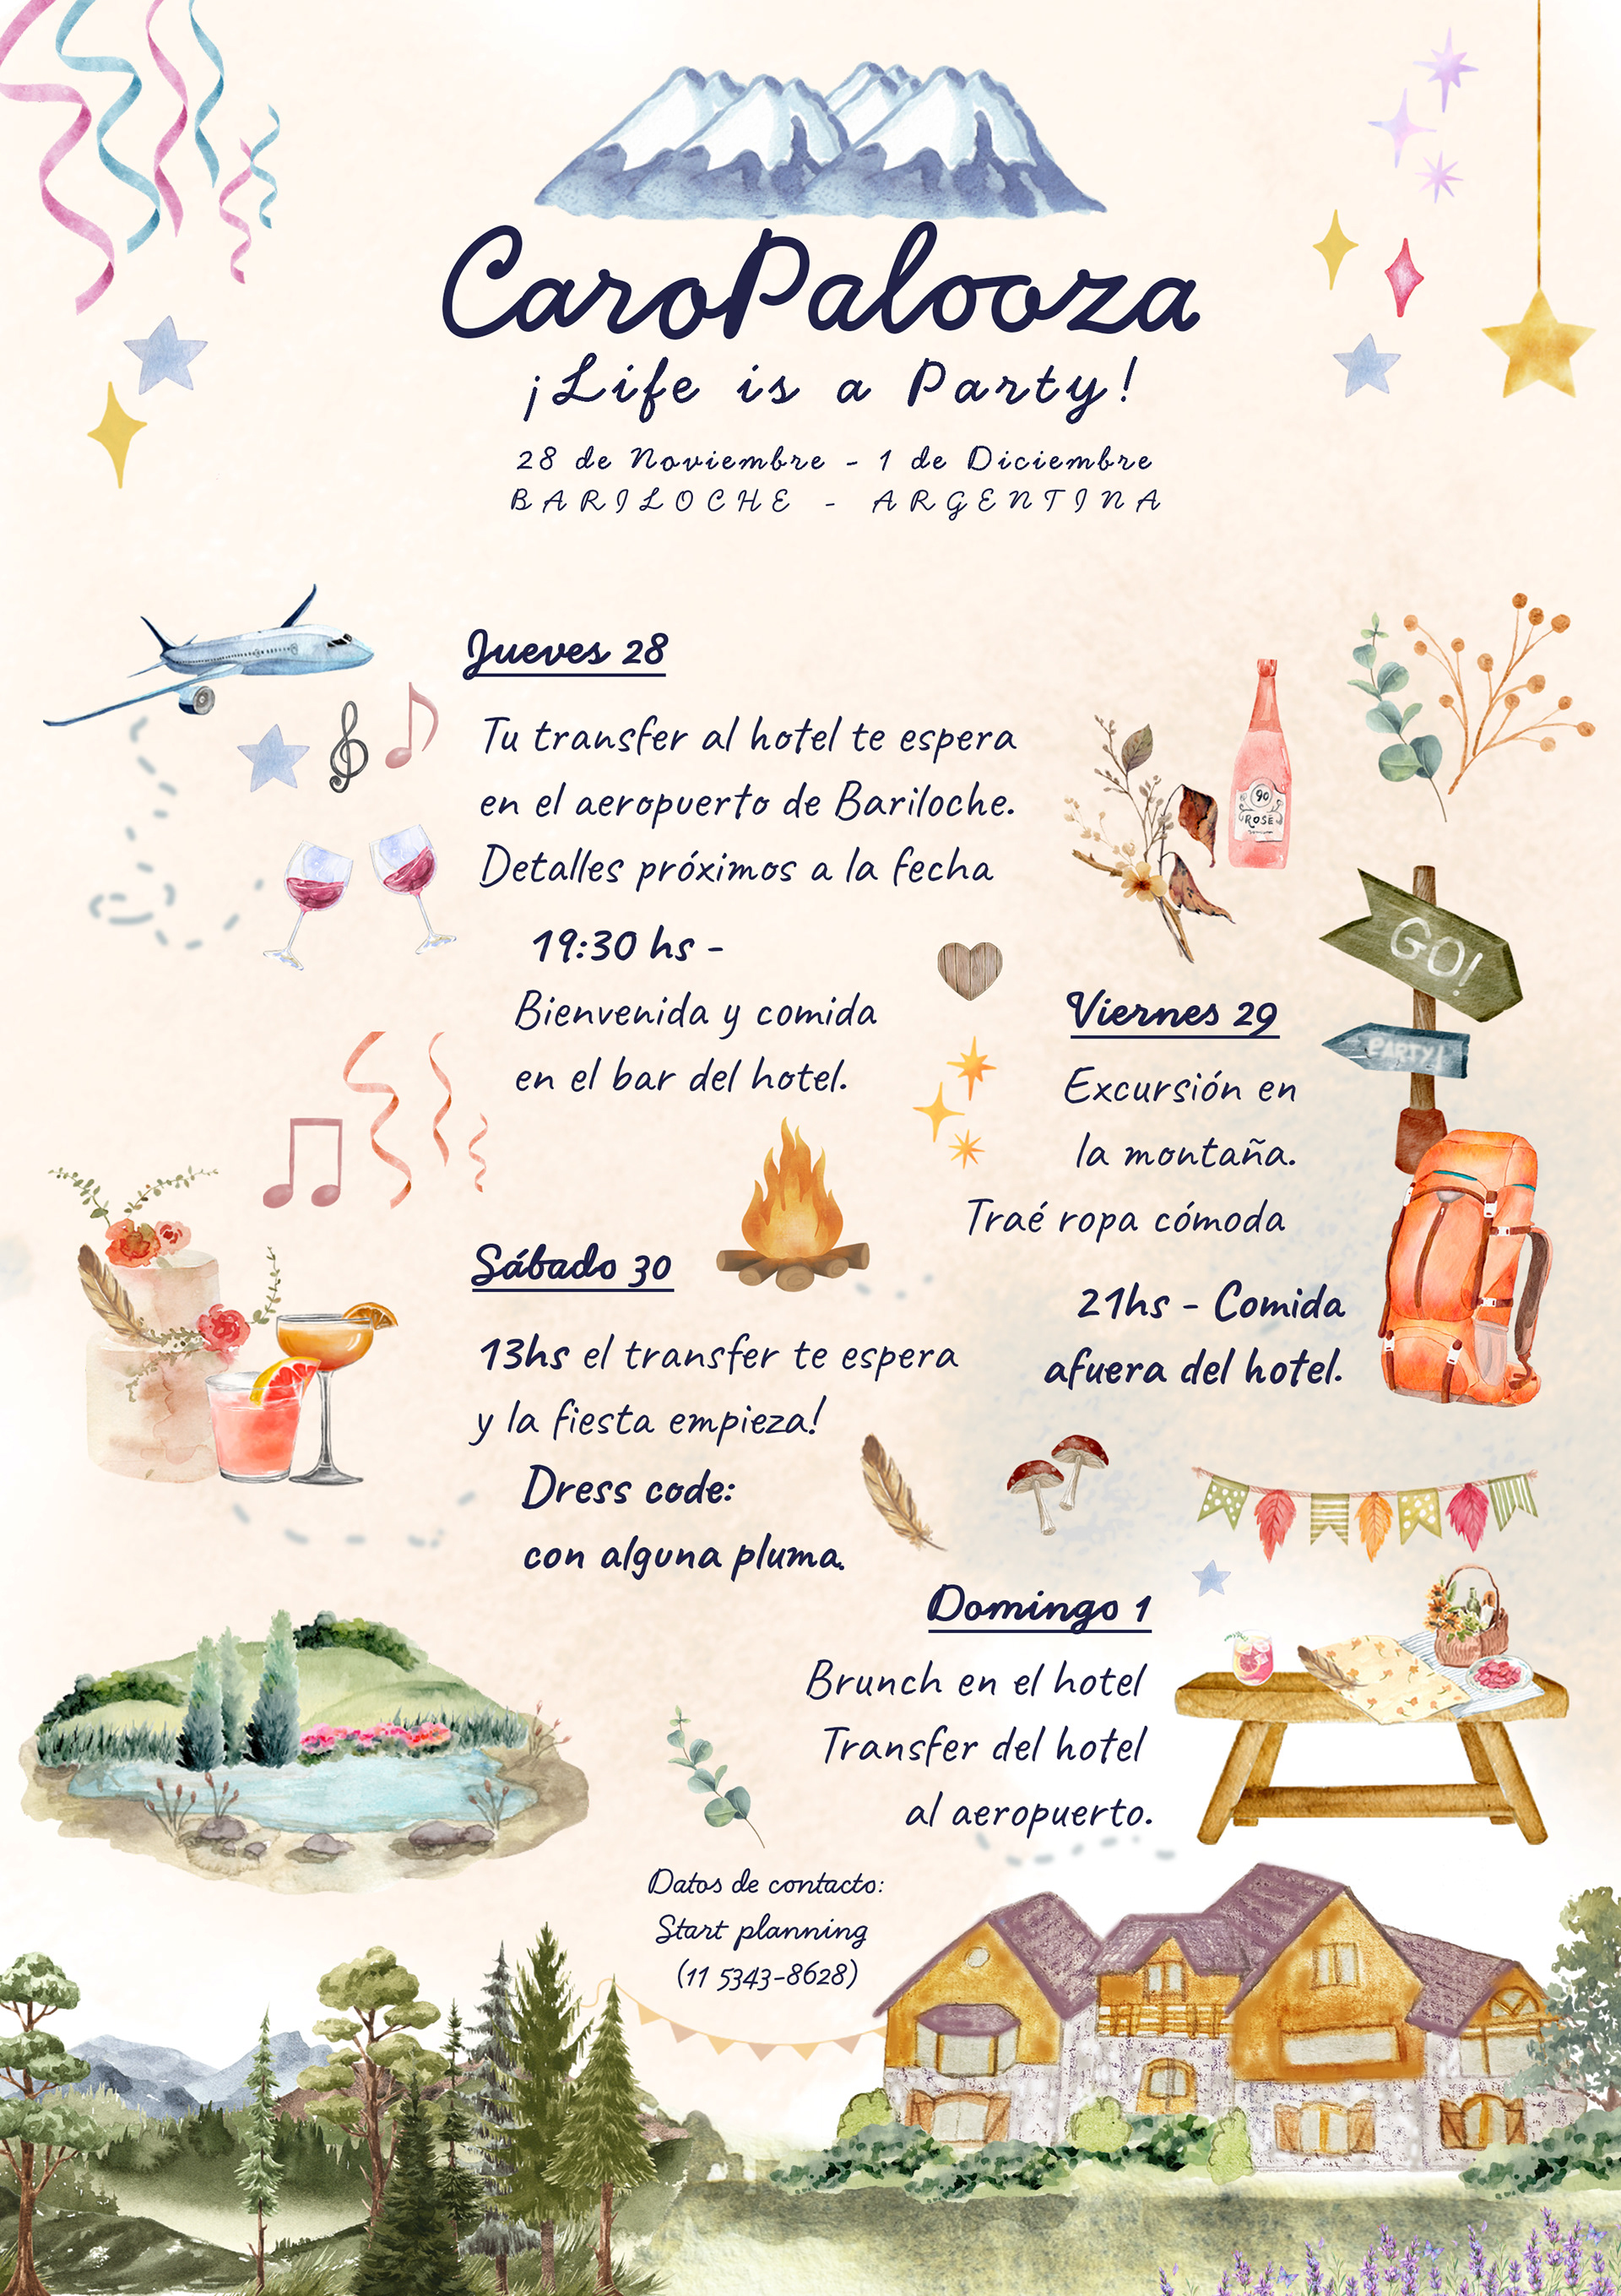 CaroPalooza
¡Life is a Party!
28 de Noviembre - 1 de Diciembre
BARILOCHE - ARGENTINA
Jueves 28
Tu transfer al hotel te espera
en el aeropuerto de Bariloche.
Detalles próximos a la fecha
19:30 hs -
Bienvenida y comida
en el bar del hotel.
90
ROSÉ
GO!
PARTY!
Viernes 29
Excursión en
la montaña.
Traé ropa cómoda
21hs - Comida
afuera del hotel.
Sábado 30
13hs el transfer te espera
y la fiesta empieza!
Dress code:
con alguna pluma.
Domingo 1
Brunch en el hotel
Transfer del hotel
al aeropuerto.
Datos de contacto:
Start planning
(11 5343-8628)